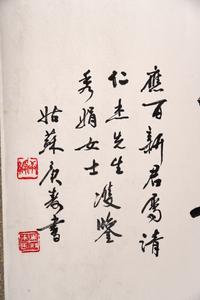 應百新君屬請
仁杰先生 雙鑒
秀娟女士
姑蘇庚春書